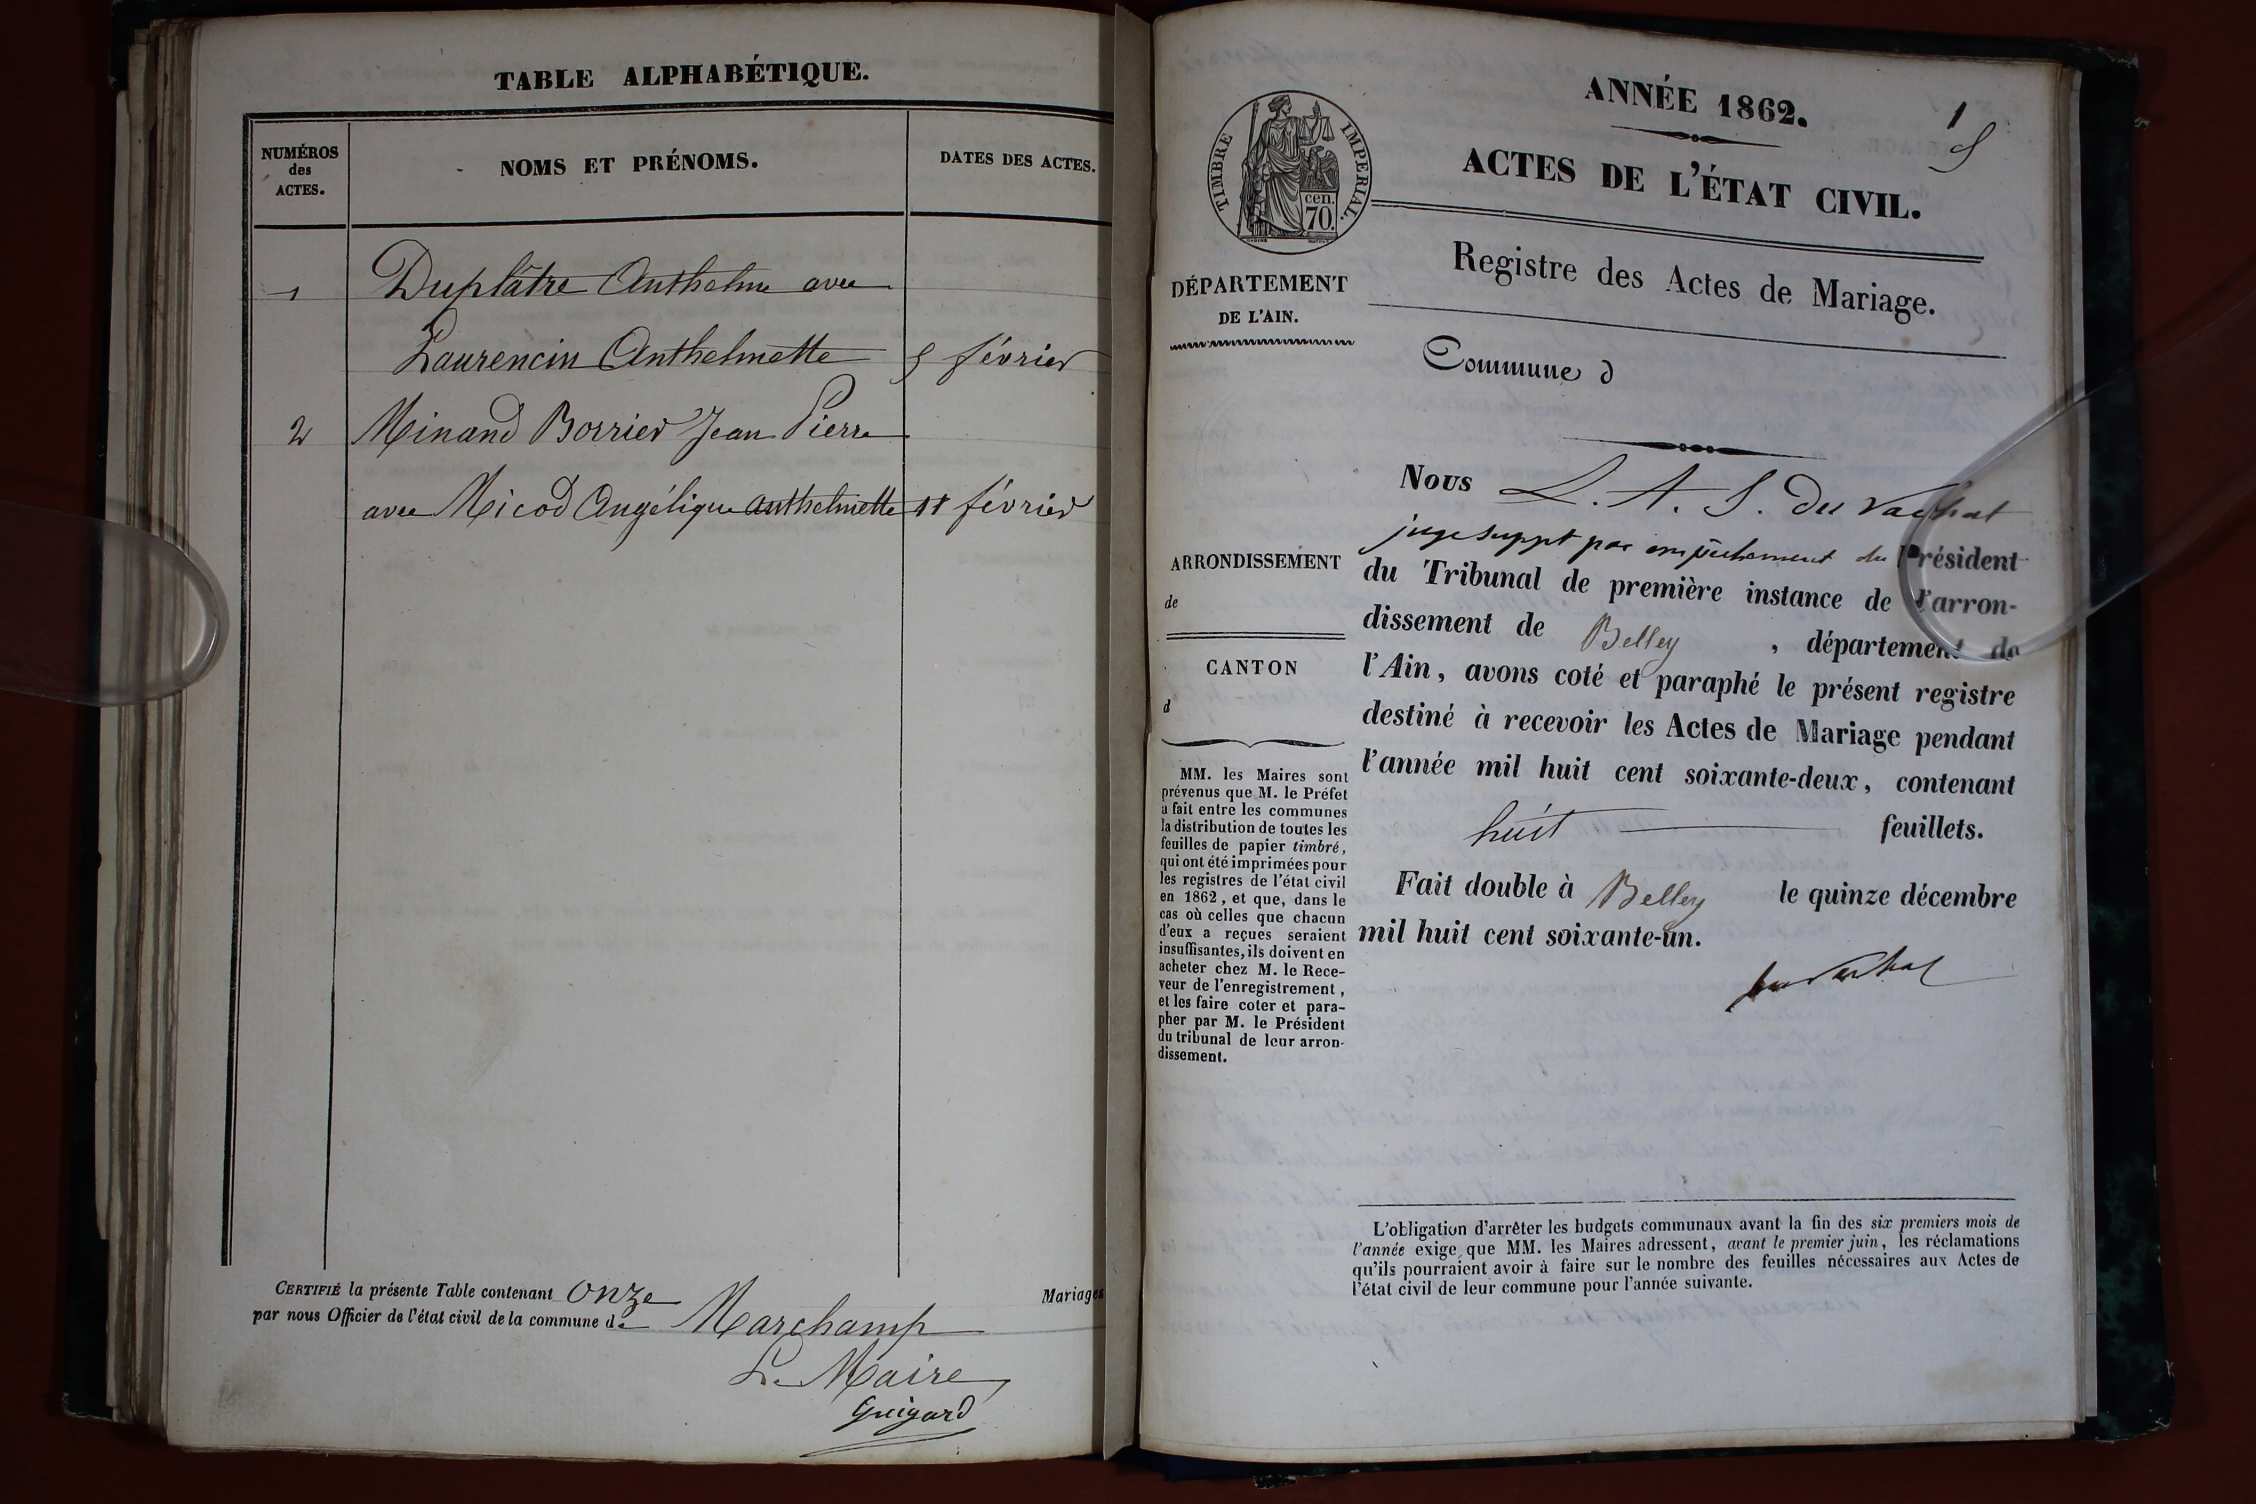 TABLE ALPHABÉTIQUE.
NUMÉROS
des
ACTES.
NOMS ET PRÉNOMS.
DATES DES ACTES.
1 Duplâtre Anthelme avec
Laurencin Anthelmette 5 février
2 Minand Borrier Jean Pierre
avec Micod Angélique Anthelmette 11 février
CERTIFIÉ la présente Table contenant Onze Mariages
par nous Officier de l'état civil de la commune de Marchamp
Le Maire
Guigard
ANNÉE 1862.
1
ACTES DE L'ÉTAT CIVIL.
TIMBRE IMPERIAL.
cen.
70.
Registre des Actes de Mariage.
DÉPARTEMENT
DE L'AIN.
Commune d
ARRONDISSEMENT
de
CANTON
d
MM. les Maires sont
prévenus que M. le Préfet
a fait entre les communes
la distribution de toutes les
feuilles de papier timbré,
qui ont été imprimées pour
les registres de l'état civil
en 1862, et que, dans le
cas où celles que chacun
d'eux a reçues seraient
insuffisantes, ils doivent en
acheter chez M. le Rece-
veur de l'enregistrement,
et les faire coter et para-
pher par M. le Président
du tribunal de leur arron-
dissement.
Nous L. A. S. du Vachat
juge suppt par empêchement du Président
du Tribunal de première instance de l'arron-
dissement de Belley, département de
l'Ain, avons coté et paraphé le présent registre
destiné à recevoir les Actes de Mariage pendant
l'année mil huit cent soixante-deux, contenant
huit feuillets.
Fait double à Belley le quinze décembre
mil huit cent soixante-un.
du Vachat
L'obligation d'arrêter les budgets communaux avant la fin des six premiers mois de
l'année exige que MM. les Maires adressent, avant le premier juin, les réclamations
qu'ils pourraient avoir à faire sur le nombre des feuilles nécessaires aux Actes de
l'état civil de leur commune pour l'année suivante.